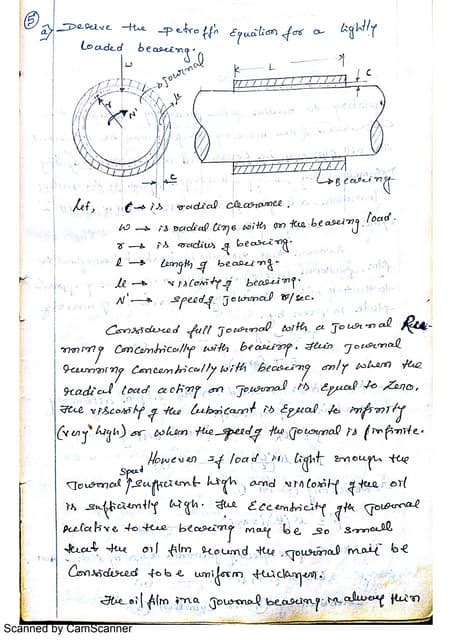 5
a) Deserve the petroff's Equation for a lightly
loaded bearing.
W
journal
K L
C
r
N'
μ
C
Bearing
Let, C → is radial clearance.
W → is radial line with on the bearing load.
r → is radius of bearing.
l → length of bearing.
μ → viscosity of bearing.
N' → speed of Journal r/sec.
Considered full Journal with a Journal Ru-
nning Concentrically with bearing. This Journal
running Concentrically with bearing only when the
radial load acting on Journal is equal to Zero.
The viscosity of the lubricant is Equal to infinity
(very high) or when the speed of the Journal is infinite.
However if load is light enough the
Journal speed sufficient high and viscosity of the oil
is sufficiently high. The Eccentricity of the Journal
relative to the bearing may be so small
that the oil film round the Journal may be
Considered to be uniform thickness.
The oil film in a Journal bearing is always thin
Scanned by CamScanner